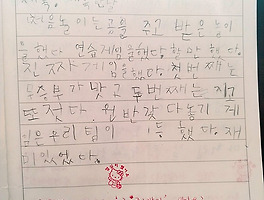 처음 놀이는 공을 주고 받은 놀이
를 했다 연습게임을 했다 한만 했다.
진짜 게임을 했다. 첫번째는
무승부가 맞고 두번째는 지고
또 젔다. 원반 갖다 놓기 게
임은 우리 팀이 1등 했다. 재
미있었다.